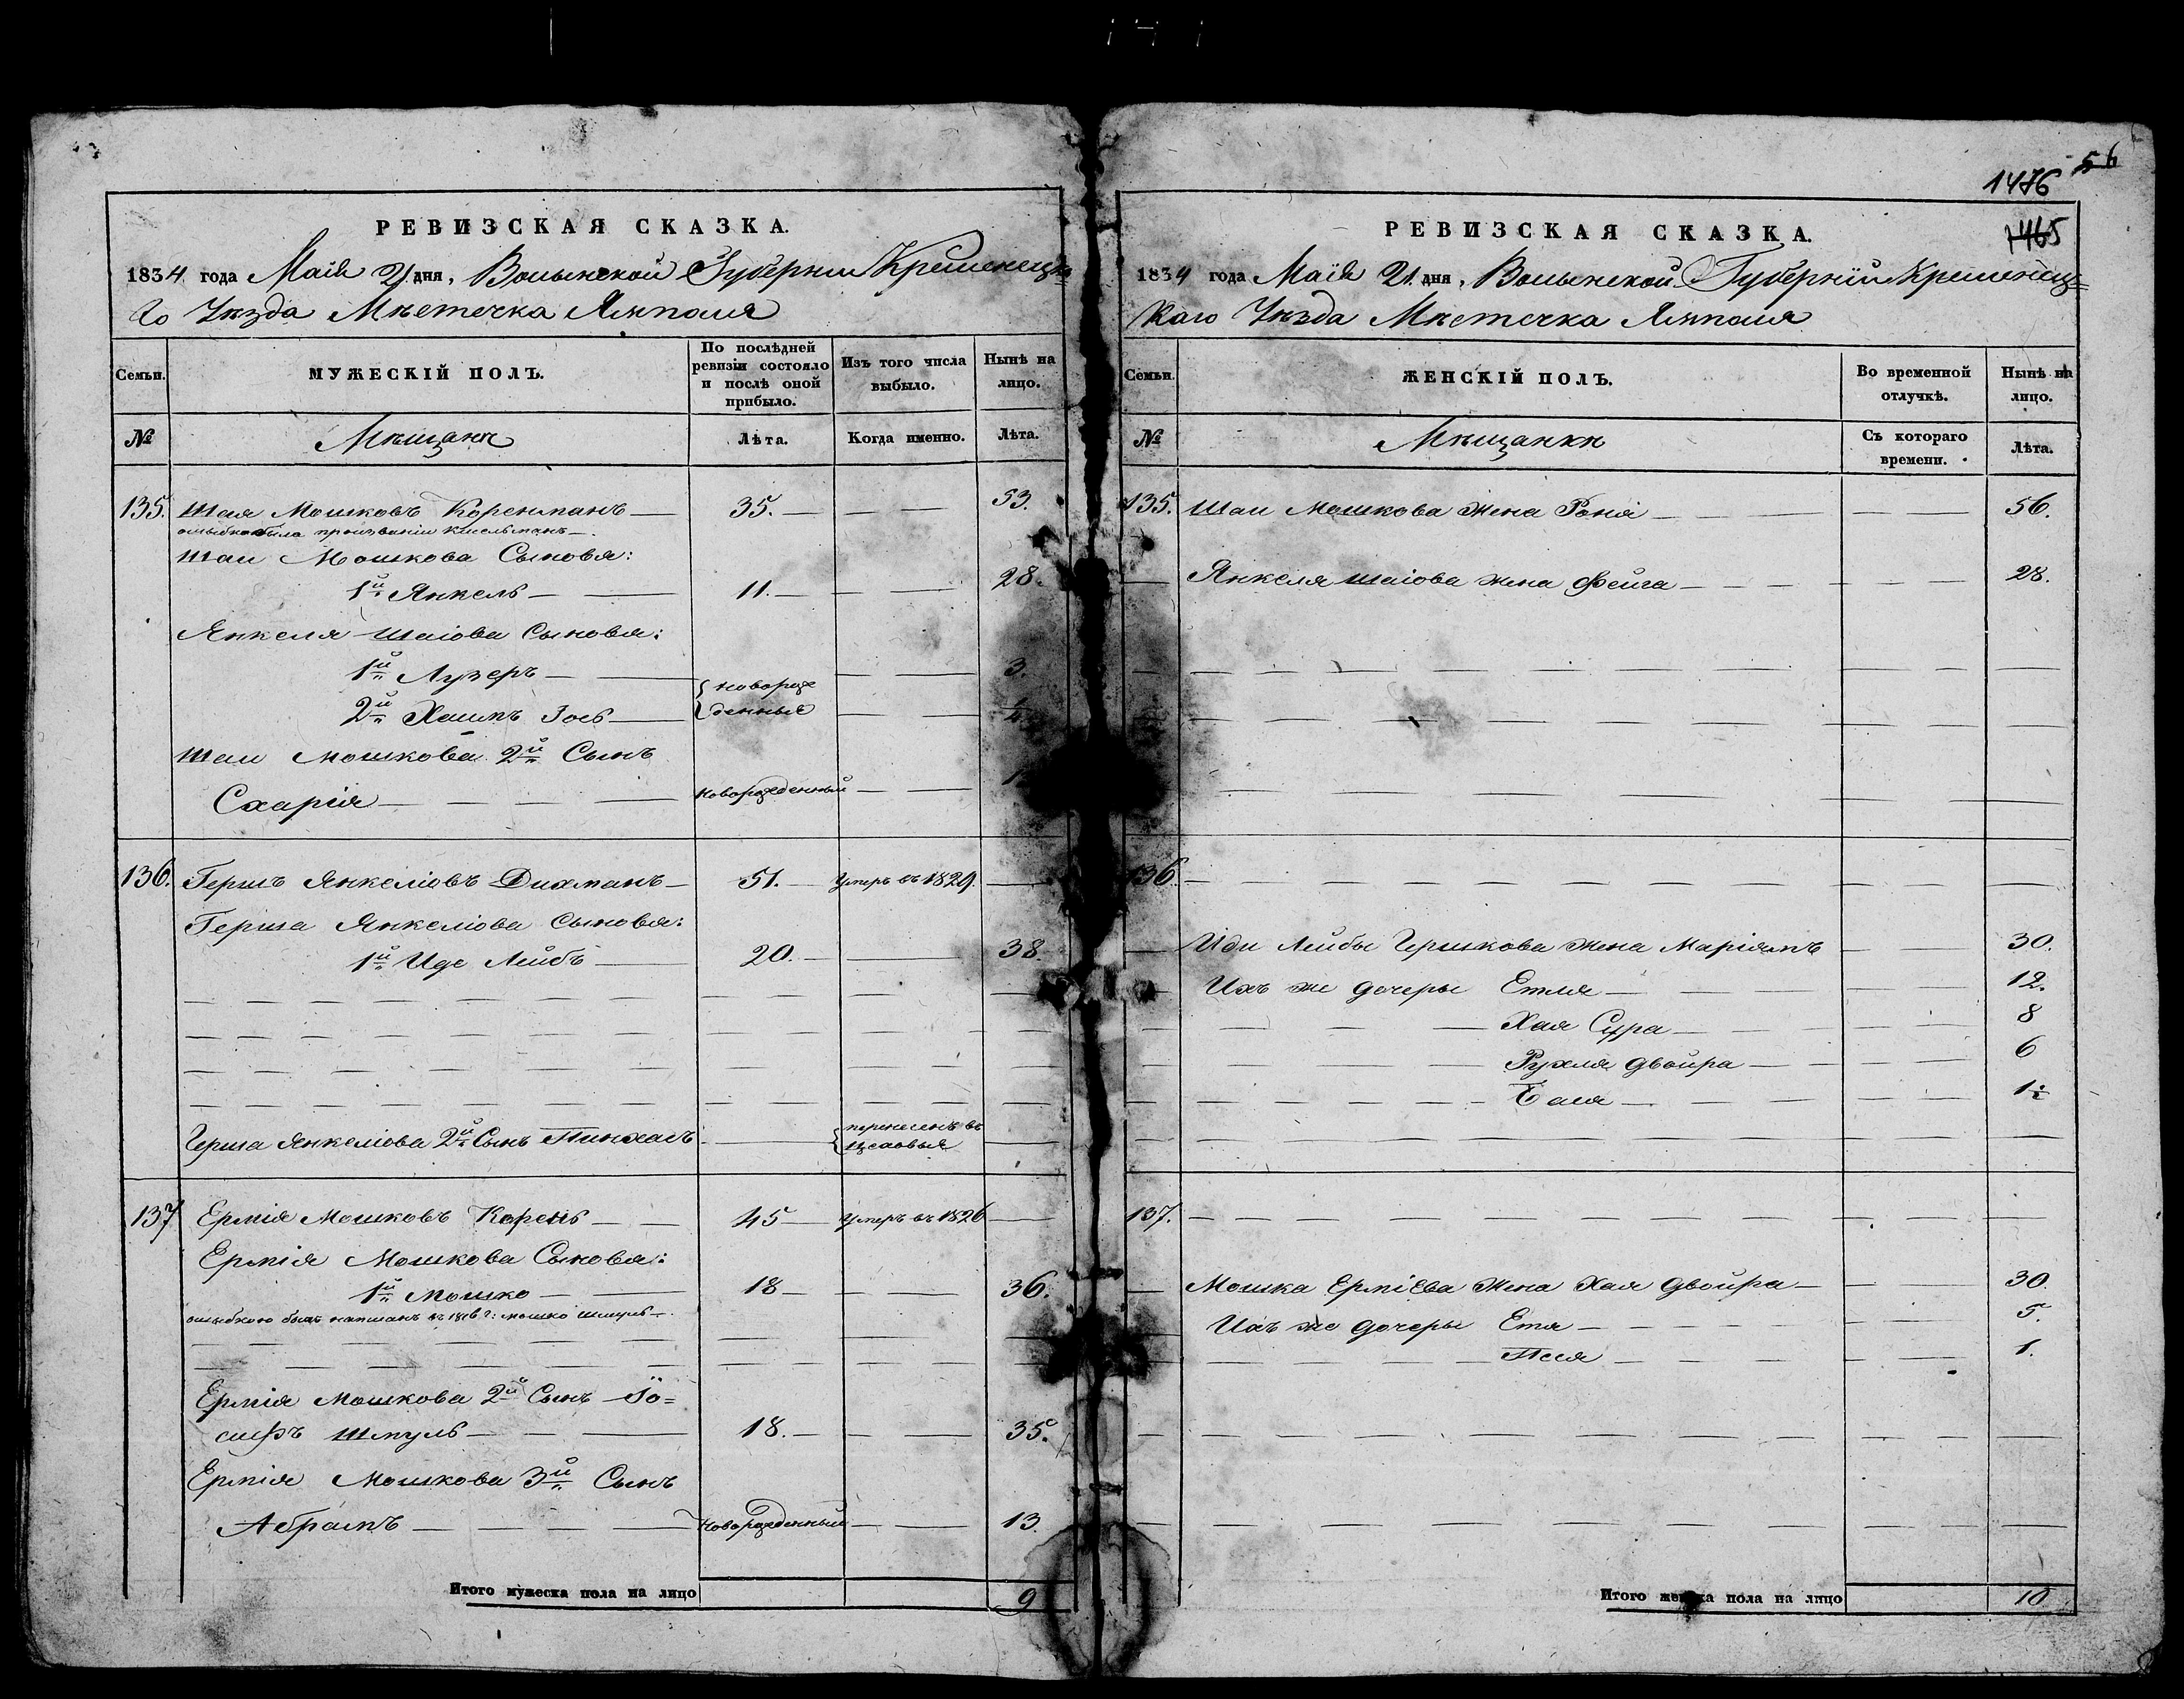 1476 56
1465
РЕВИЗСКАЯ СКАЗКА.
1834 года Маія 21 дня, Волынской Губерніи Кременецка
го Уѣзда Мѣстечка Ямполя
Семьи.
МУЖЕСКІЙ ПОЛЪ.
По послѣдней ревизіи состояло и послѣ оной прибыло.
Изъ того числа выбыло.
Нынѣ на лицо.
№
Мѣщанъ
Лѣта.
Когда именно.
Лѣта.
135. Шая Мошковъ Коренманъ 35. 53.
ошыбка была прозваніи
Шаи Мошкова Сыновя:
1й Янкель 11. 28.
Янкеля Шаіова Сыновя:
1й Лузеръ 3.
новорож
денные
2й Хаимъ Зось
Шаи Мошкова 2й Сынъ
Схарія новорожденный
136. Гершъ Янкеліовъ Дихманъ 51. Умеръ въ 1829.
Герша Янкеліова Сыновя:
1й Иде Лейбъ 20. 38.
Герша Янкеліова 2й Сынъ Пинхасъ перенесенъ въ
137 Ермія Мошковъ Корень 45 Умеръ въ 1826
Ермія Мошкова Сыновя:
1й Мошко 18 36.
ошыбкою былъ написанъ въ 1816 г: мошко шмуль
Ермія Мошкова 2й Сынъ Іо=
сифъ Шмуль 18. 35.
Ермія Мошкова 3й Сынъ
Абрамъ Новорожденный 13.
Итого мужеска пола на лицо 9
РЕВИЗСКАЯ СКАЗКА.
1834 года Маія 21. дня, Волынской Губерніи Кременец=
каго Уѣзда Мѣстечка Ямполя
Семьи.
ЖЕНСКІЙ ПОЛЪ.
Во временной отлучкѣ.
Нынѣ на лицо.
№
Мѣщанки
Съ котораго времени.
Лѣта.
135. Шаи Мошкова Жена Роня 56.
Янкеля Шаіова жена Фейга 28.
136
Иди Лейбы Гершкова Жена Маріямъ 30.
Ихъ же дочеры Етля 12.
Хая Сура 8
Рухля Двойра 6
Бася 1½
137.
Мошка Ерміева Жена Хая Двойра 30.
Ихъ же дочеры Етя 5.
Песя 1.
Итого женска пола на лицо 10